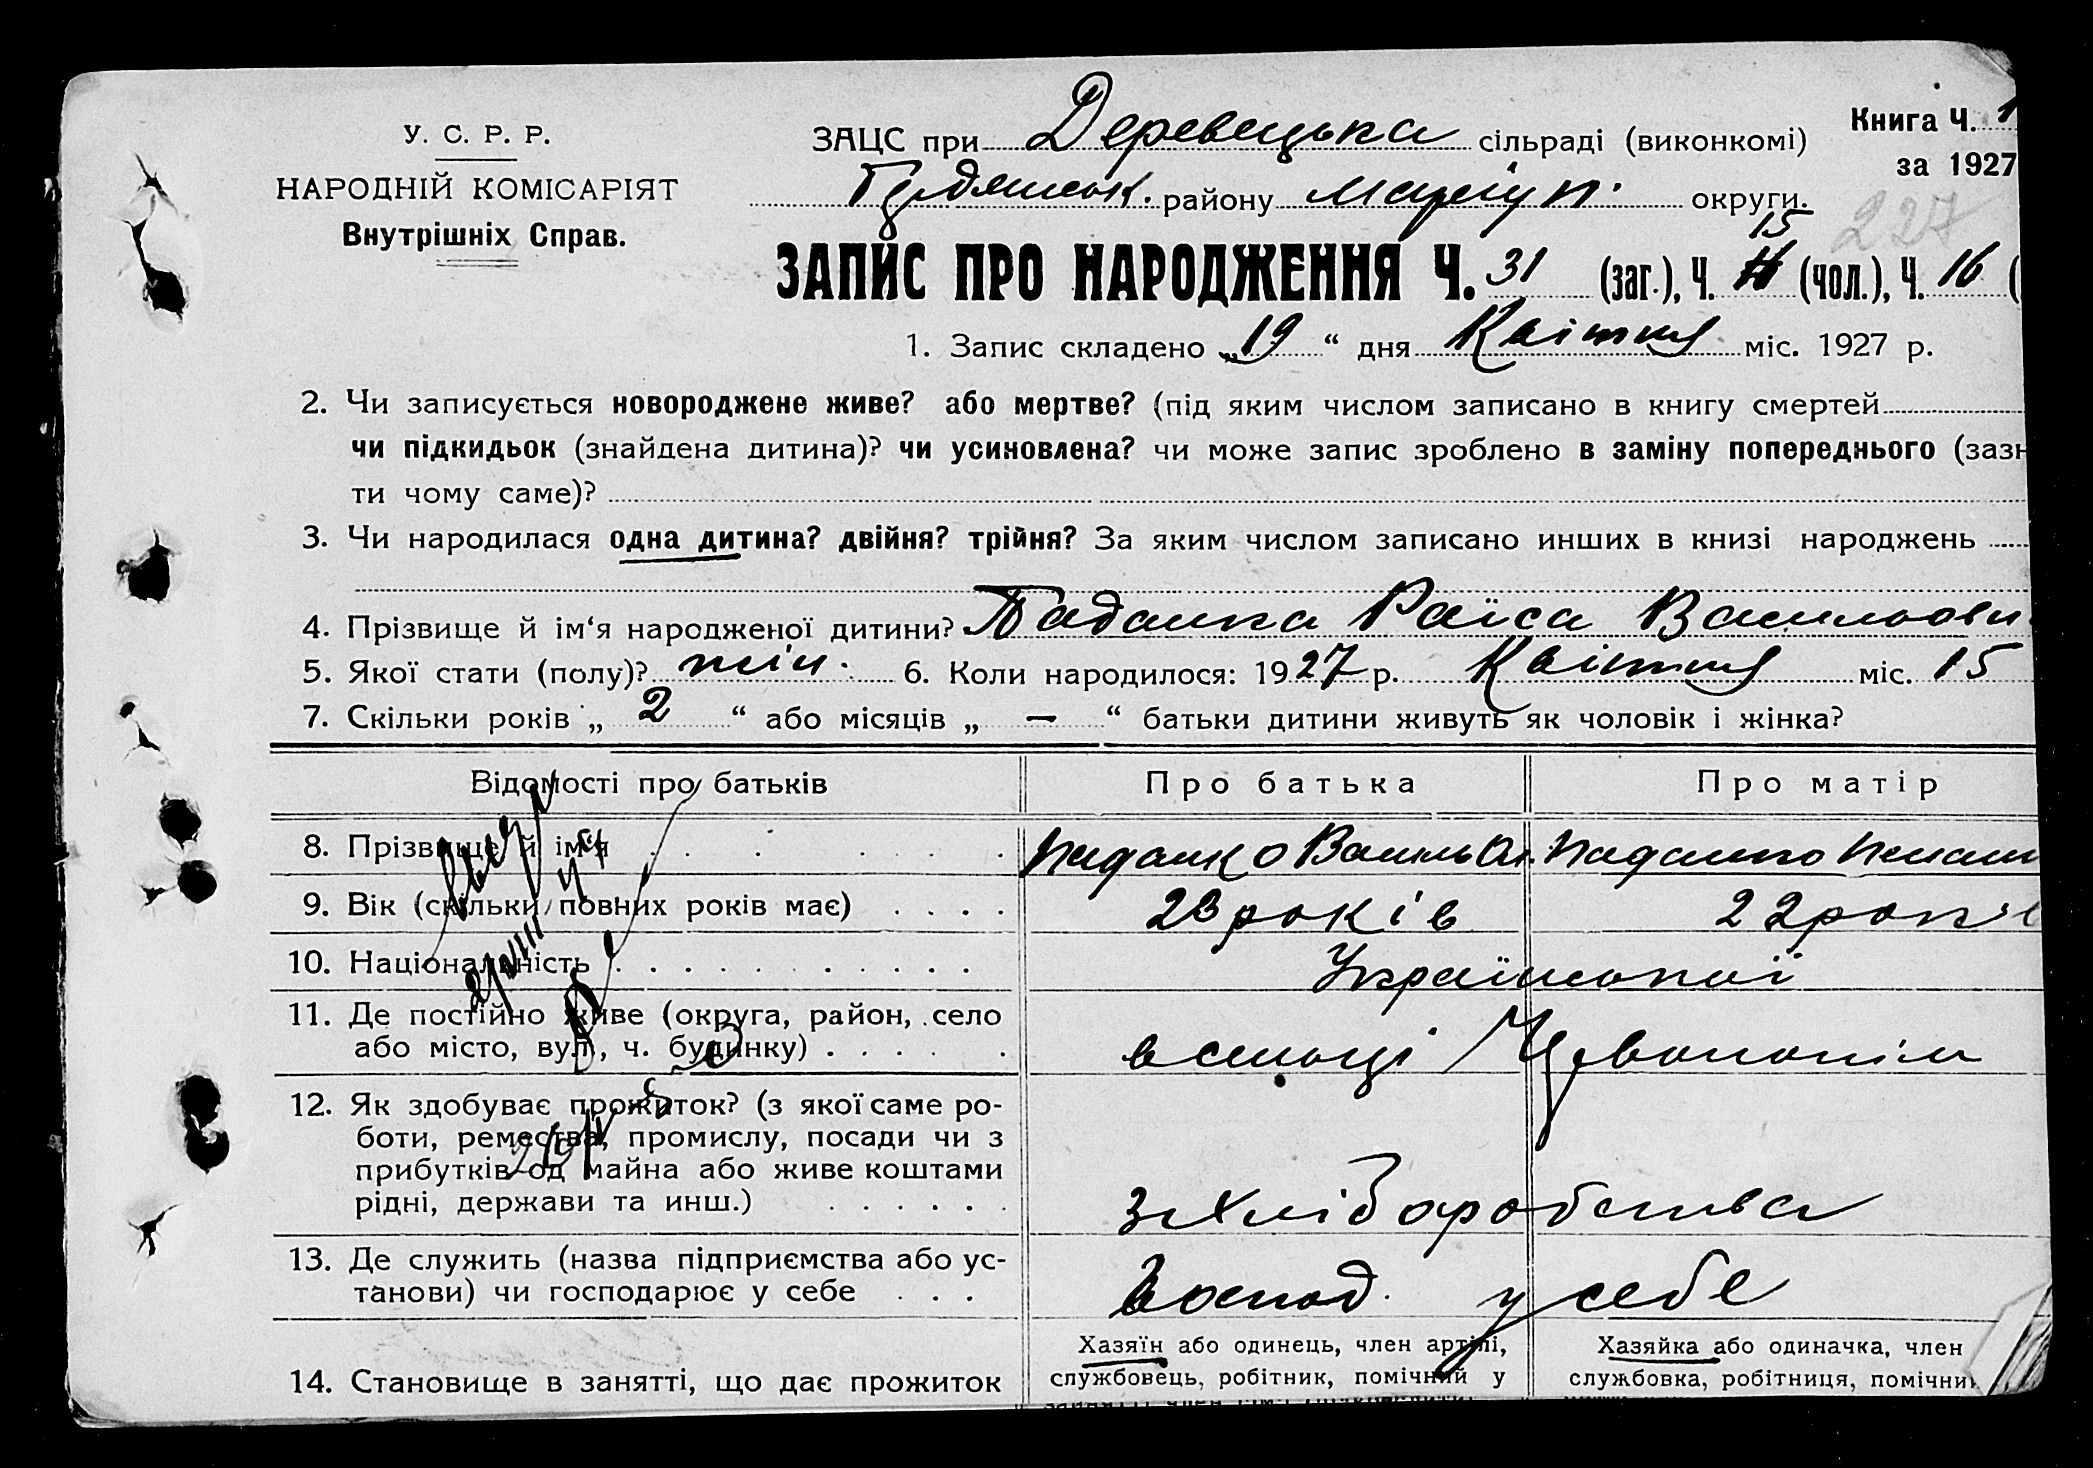 У. С. Р. Р.
НАРОДНІЙ КОМІСАРІЯТ
Внутрішніх Справ.
ЗАЦС при Деревецька сільраді (виконкомі)
району Маріуп. округи.
Книга Ч. 1
за 1927
227
15
ЗАПИС ПРО НАРОДЖЕННЯ Ч. 31 (заг.), Ч. (чол.), Ч. 16 (
1. Запис складено „19“ дня Квітня міс. 1927 р.
2. Чи записується новороджене живе? або мертве? (під яким числом записано в книгу смертей
чи підкидьок (знайдена дитина)? чи усиновлена? чи може запис зроблено в заміну попереднього (зазн
ти чому саме)?
3. Чи народилася одна дитина? двійня? трійня? За яким числом записано инших в книзі народжень
4. Прізвище й ім‘я народженої дитини? Падалка Раїса Васильови
5. Якої стати (полу)? жін. 6. Коли народилося: 1927 р. Квітня міс. 15
7. Скільки років „ 2 “ або місяців „ — “ батьки дитини живуть як чоловік і жінка?
Відомості про батьків
Про батька
Про матір
8. Прізвище й ім‘я
Падалко Василь Ол. Падалко
9. Вік (скільки повних років має)
23 років
22 років
10. Національність
Української
11. Де постійно живе (округа, район, село
або місто, вул., ч. будинку)
в селищі
12. Як здобуває прожиток? (з якої саме ро-
боти, ремества, промислу, посади чи з
прибутків од майна або живе коштами
рідні, держави та инш.)
з Хліборобства
13. Де служить (назва підприємства або ус-
танови) чи господарює у себе
Господ. у себе
14. Становище в занятті, що дає прожиток
Хазяїн або одинець, член артілі,
службовець, робітник, помічний у
Хазяйка або одиначка, член
службовка, робітниця, помічни